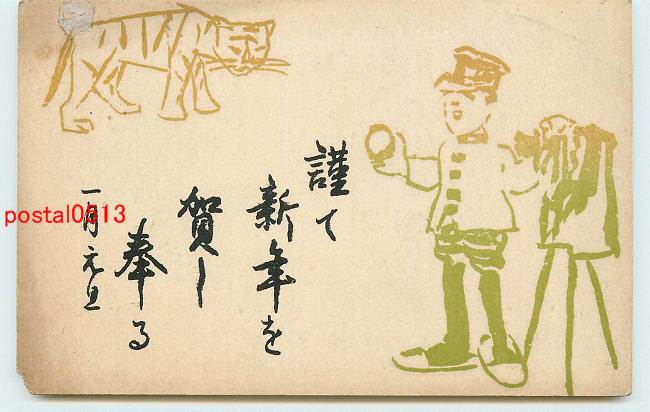 謹て
新年を
賀し
奉る
一月元旦
postal0513